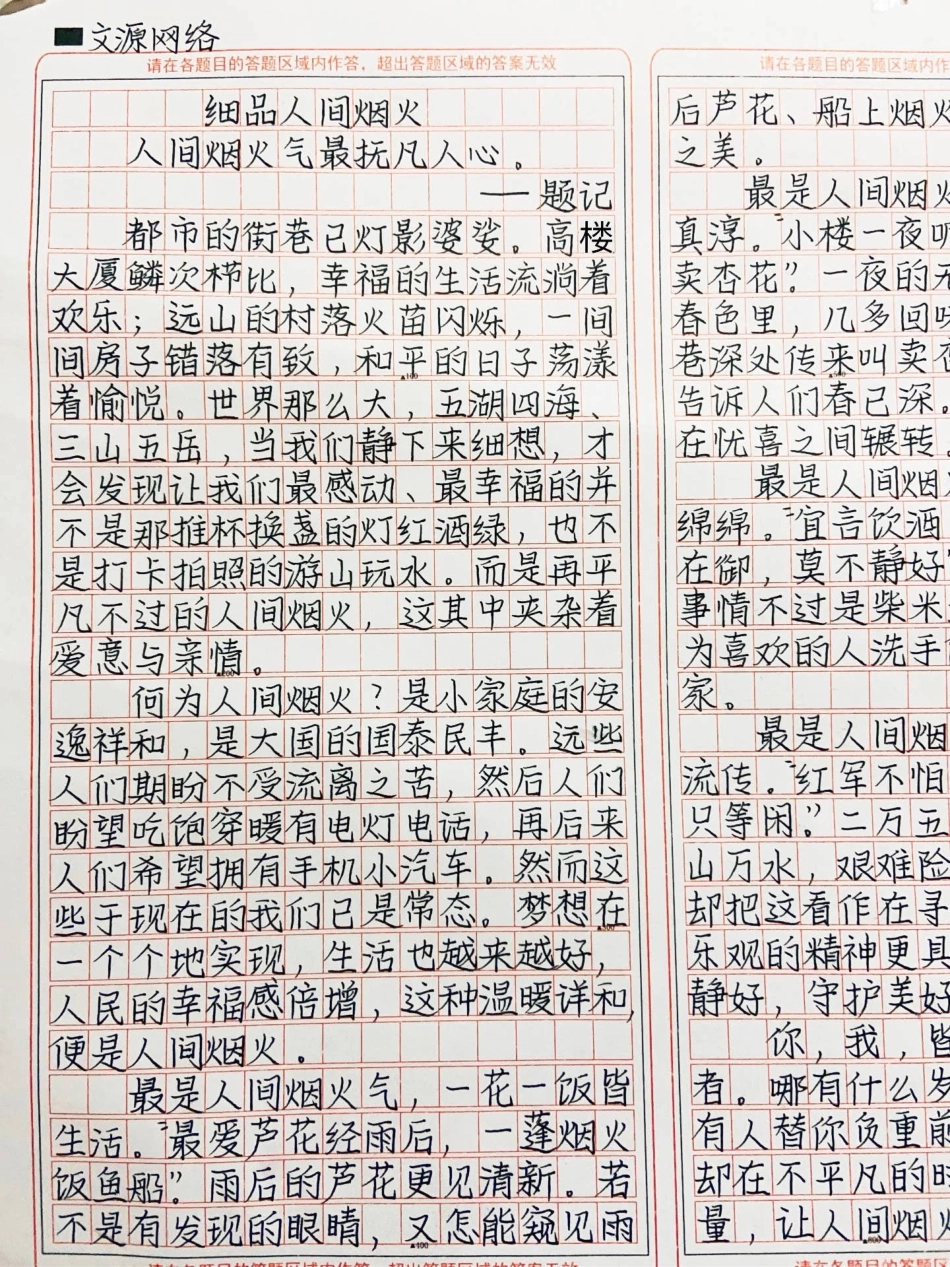 文源网络
请在各题目的答题区域内作答，超出答题区域的答案无效
细品人间烟火
人间烟火气最抚凡人心。
——题记
都市的街巷已灯影婆娑。高楼
大厦鳞次栉比，幸福的生活流淌着
欢乐；远山的村落火苗闪烁，一间
间房子错落有致，和平的日子荡漾
▲100
着愉悦。世界那么大，五湖四海、
三山五岳，当我们静下来细想，才
会发现让我们最感动、最幸福的并
不是那推杯换盏的灯红酒绿，也不
是打卡拍照的游山玩水。而是再平
凡不过的人间烟火，这其中夹杂着
爱意与亲情。
▲200
何为人间烟火？是小家庭的安
逸祥和，是大国的国泰民丰。远些
人们期盼不受流离之苦，然后人们
盼望吃饱穿暖有电灯电话，再后来
人们希望拥有手机小汽车。然而这
些于现在的我们已是常态。梦想在
▲300
一个个地实现，生活也越来越好，
人民的幸福感倍增，这种温暖详和，
便是人间烟火。
最是人间烟火气，一花一饭皆
生活。“最爱芦花经雨后，一蓬烟火
饭鱼船”。雨后的芦花更见清新。若
不是有发现的眼睛，又怎能窥见雨
▲400
请在各题目的答题区域内作答，超出答题区域的答案无效
请在各题目的答题区域内作
后芦花、船上烟火
之美。
最是人间烟火
真淳。“小楼一夜听
卖杏花”。一夜的无
春色里，几多回味
巷深处传来叫卖杏
告诉人们春已深。
在忧喜之间辗转。
最是人间烟火
绵绵。“宜言饮酒
在御，莫不静好”
事情不过是柴米
为喜欢的人洗手
家。
最是人间烟
流传。“红军不怕
只等闲”。二万五
山万水，艰难险
却把这看作在寻
乐观的精神更具
静好，守护美好
你，我，皆
者。哪有什么岁
有人替你负重前
却在不平凡的时
量，让人间烟火
▲800
请在各题目的答题区